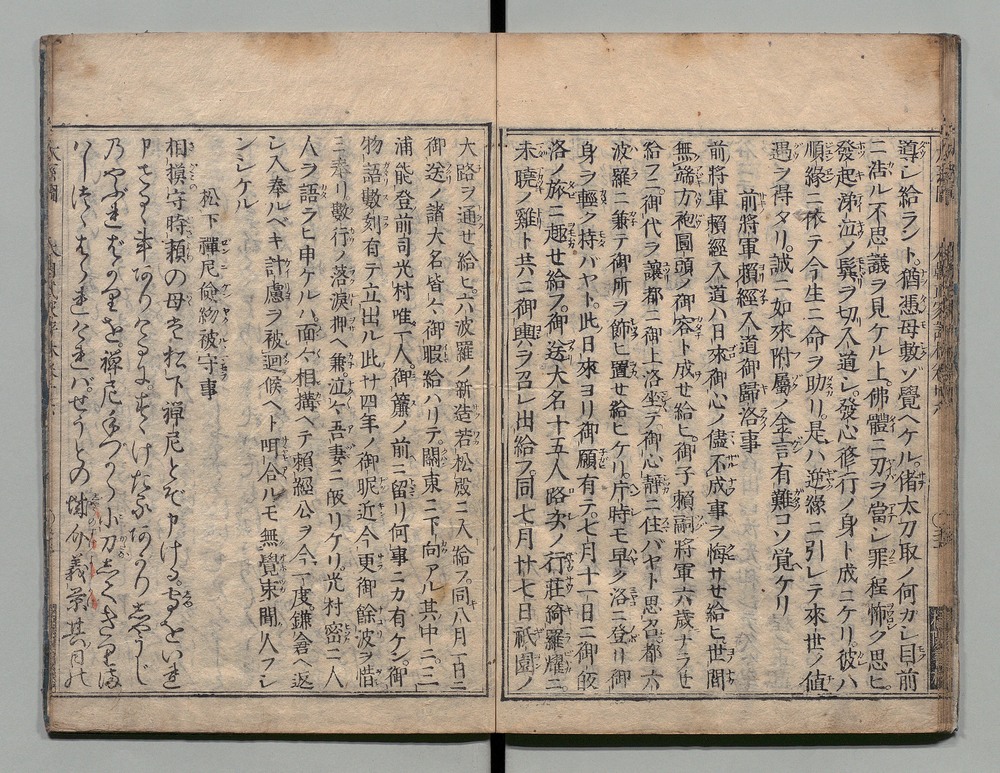 導シ給ラント。猶憑母敷ゾ覺ヘケル。偖太刀取ノ何カシ目前
ニ活ル不思議ヲ見ケル上。佛體ニ刃ヲ當シ罪程怖ク思ヒ。
發起涕泣ノ鬢ヲ切入道シ。發心修行ノ身ト成ニケリ。彼ハ
順縁ニ依テ今生ニ命ヲ助リ。是ハ逆縁ニ引レテ來世ノ値
遇ヲ得タリ。誠ニ如來附屬ノ金言有難コソ覚ケリ
前將軍賴經入道御歸洛事
前將軍賴經入道ハ日來御心ノ儘不成事ヲ悔サセ給ヒ世間
無端方袍圓頭ノ御容ト成セ給ヒ。御子賴嗣將軍六歳ナラせ
給フニ。御代ヲ讓都ニ御上洛坐テ。御心靜ニ住バヤト思召都六
波羅ニ兼テ御所ヲ飾ヒ置せ給ヒケリ。片時モ早ク洛ニ登リ御
身ヲ輕ク持バヤト。此日來ヨリ御願有テ。七月十一日ニ御皈
洛ノ旅ニ趣せ給フ。御送大名十五人路次ノ行莊綺羅耀ニ
未曉ノ雞ト共ニ御輿ヲ召レ出給フ。同七月廿七日祇園ノ
大路ヲ通せ給ヒ。六波羅ノ新造若松殿ニ入給フ。同八月一日ニ
御送ノ諸大名皆々御暇給ハリテ。關東ニ下向アル其中ニ。三
浦能登前司光村唯一人。御簾ノ前ニ留リ何事ニカ有ケン。御
物語數刻有テ立出ル此廿四年ノ御昵近今更御餘波ヲ惜
ミ奉リ數行ノ落淚押ヘ兼。泣々吾妻ニ皈リケリ。光村密ニ人
人ヲ語ラヒ申ケルハ。面々相搆ヘテ賴經公ヲ今一度。鎌倉ヘ返
シ入奉ルベキ計慮ヲ被廻候ヘト呵合ルモ無覺束聞人フシ
ンシケル
松下禪尼儉約被守事
相摸守時頼の母を松下禪尼とぞ申ける。守をいれ
申さるゝ事ありけるに。すゝけたるあかり志やうじ
乃やぶればかりを。禪尼手づから小刀してきりま
はしつゝはられければ。せうとの城介義景其日の